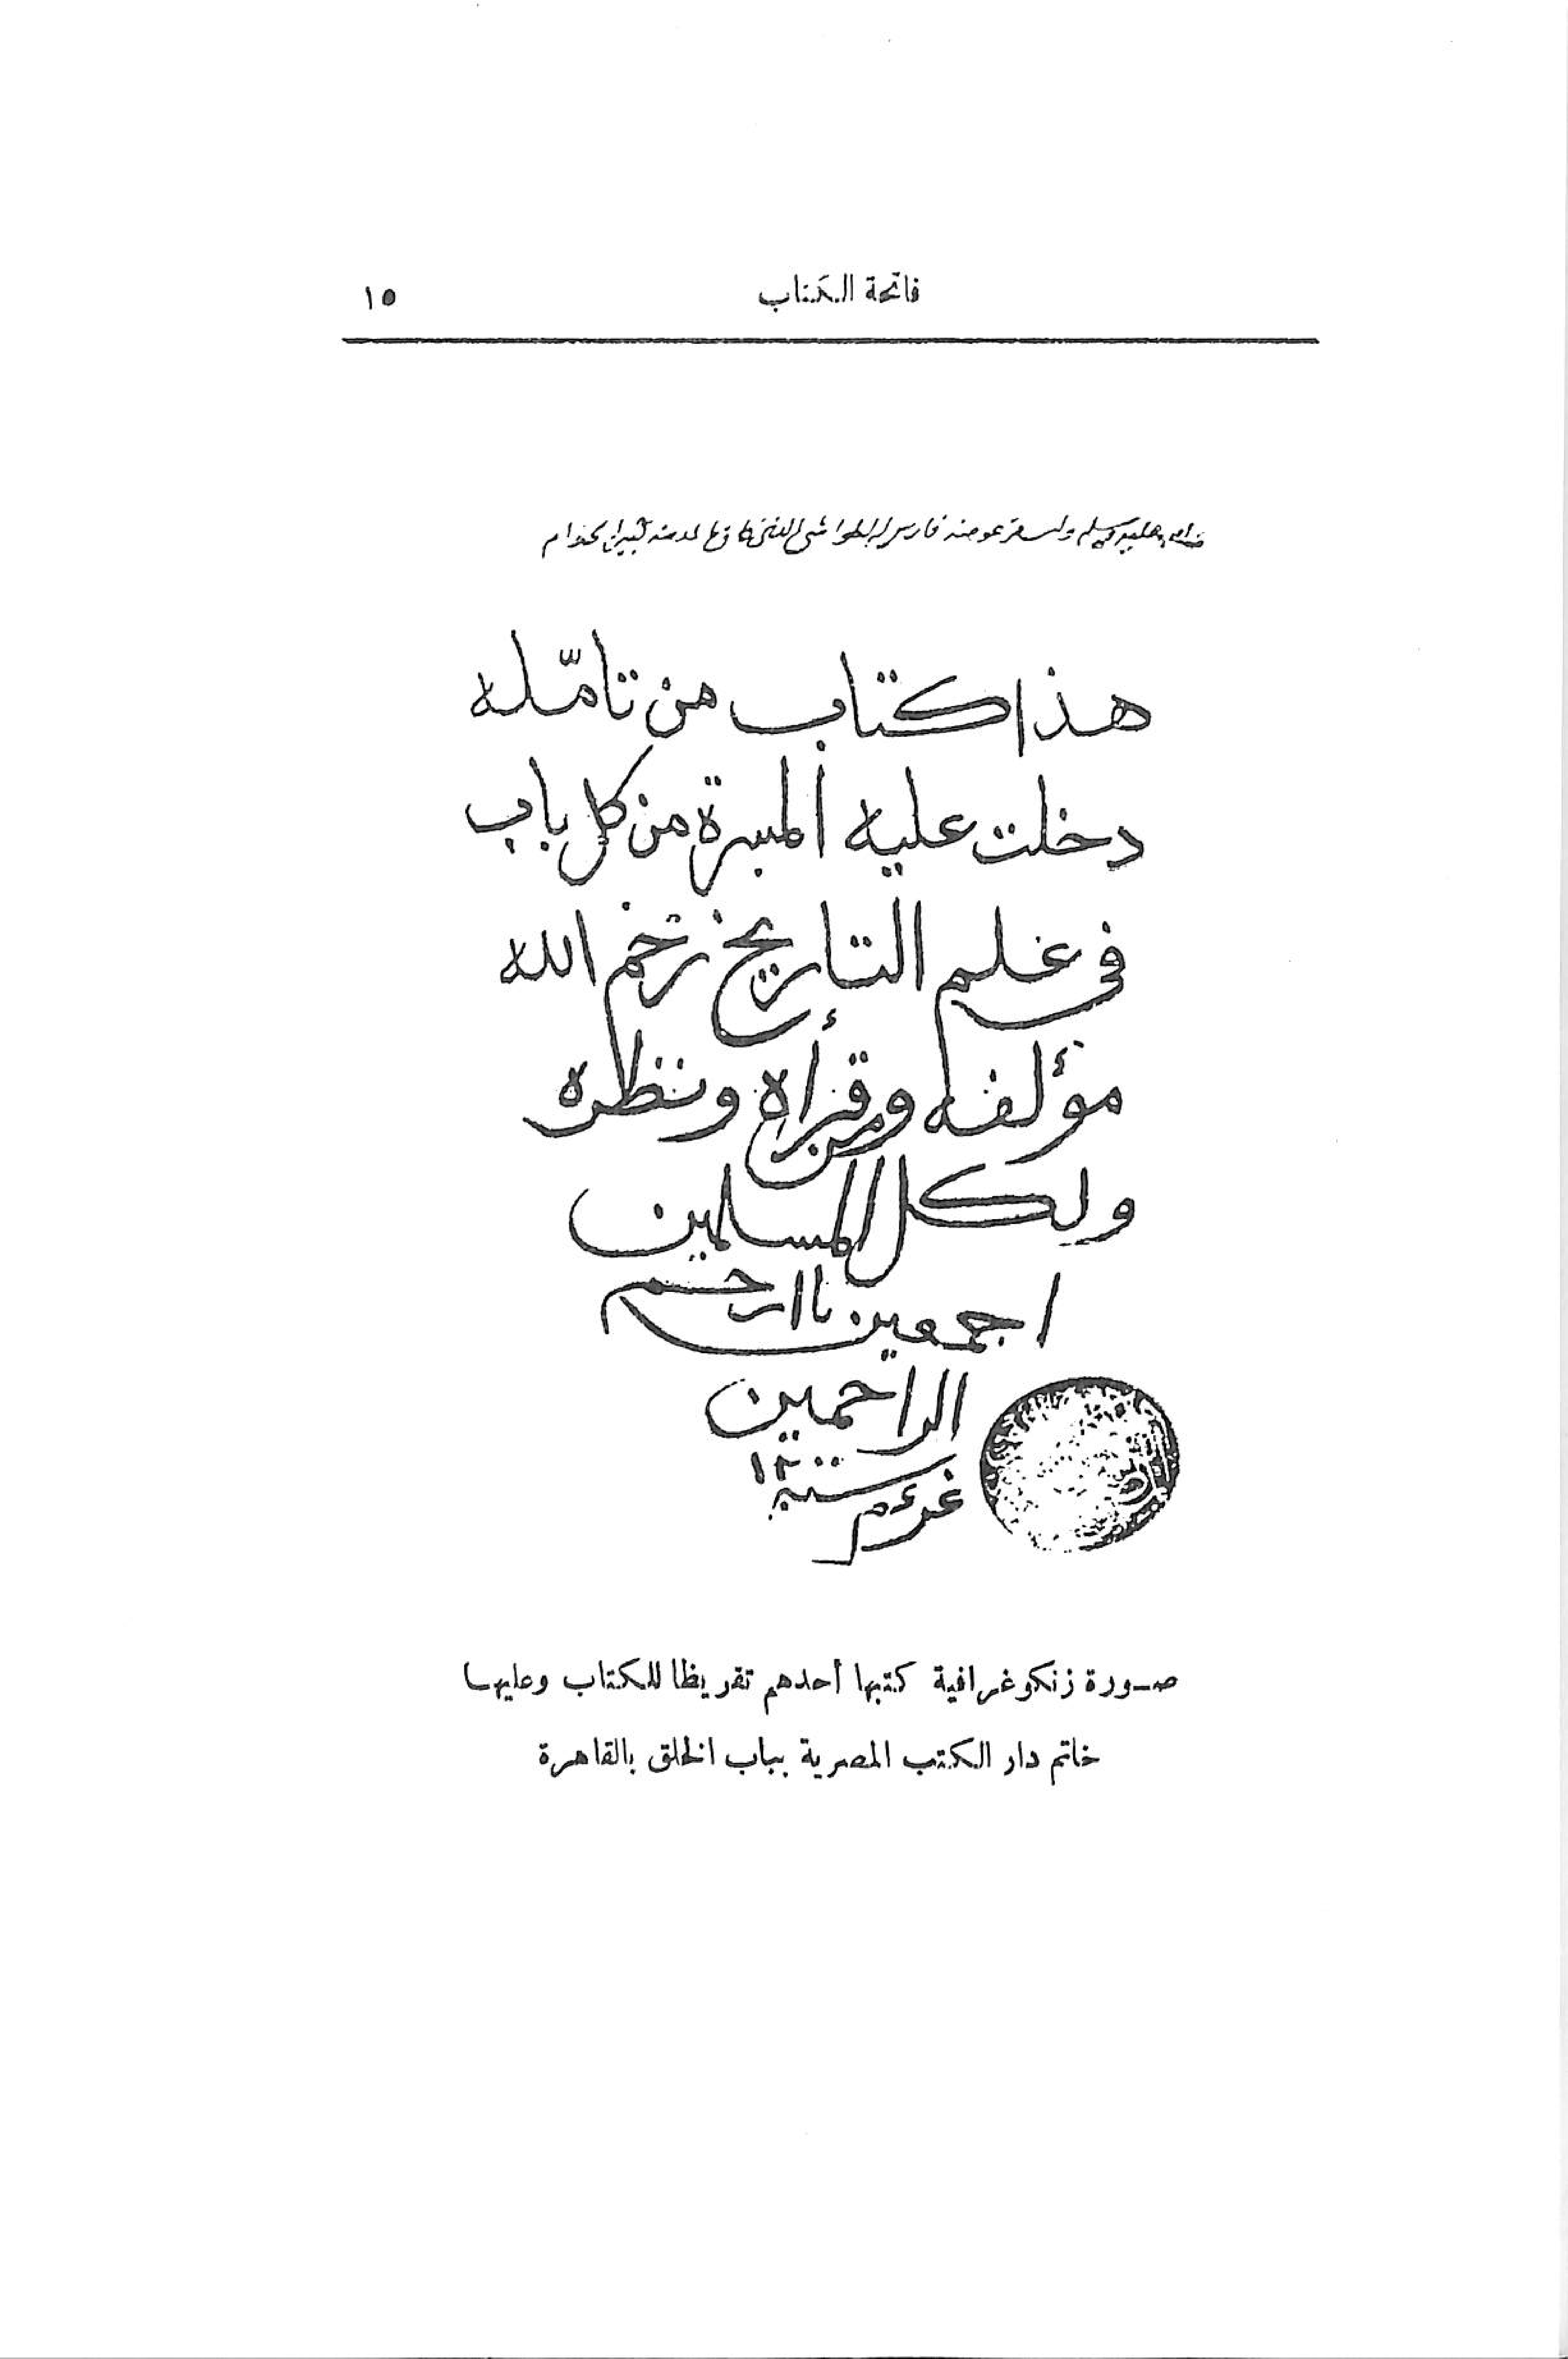 فاتحة الكتاب
١٥
عليه وسلم واستقر عوضه فارس الطواشي
هذا كتاب من تأمّله
دخلت عليه المبرة من كل باب
في علم التاريخ رحم الله
مؤلفه ومن قرأه ونظره
ولكل المسلمين
اجمعين ياارحم
الراحمين
سنة
صورة زنكوغرافية كتبها أحدهم تقريظا للكتاب وعليها
خاتم دار الكتب المصرية بباب الخلق بالقاهرة